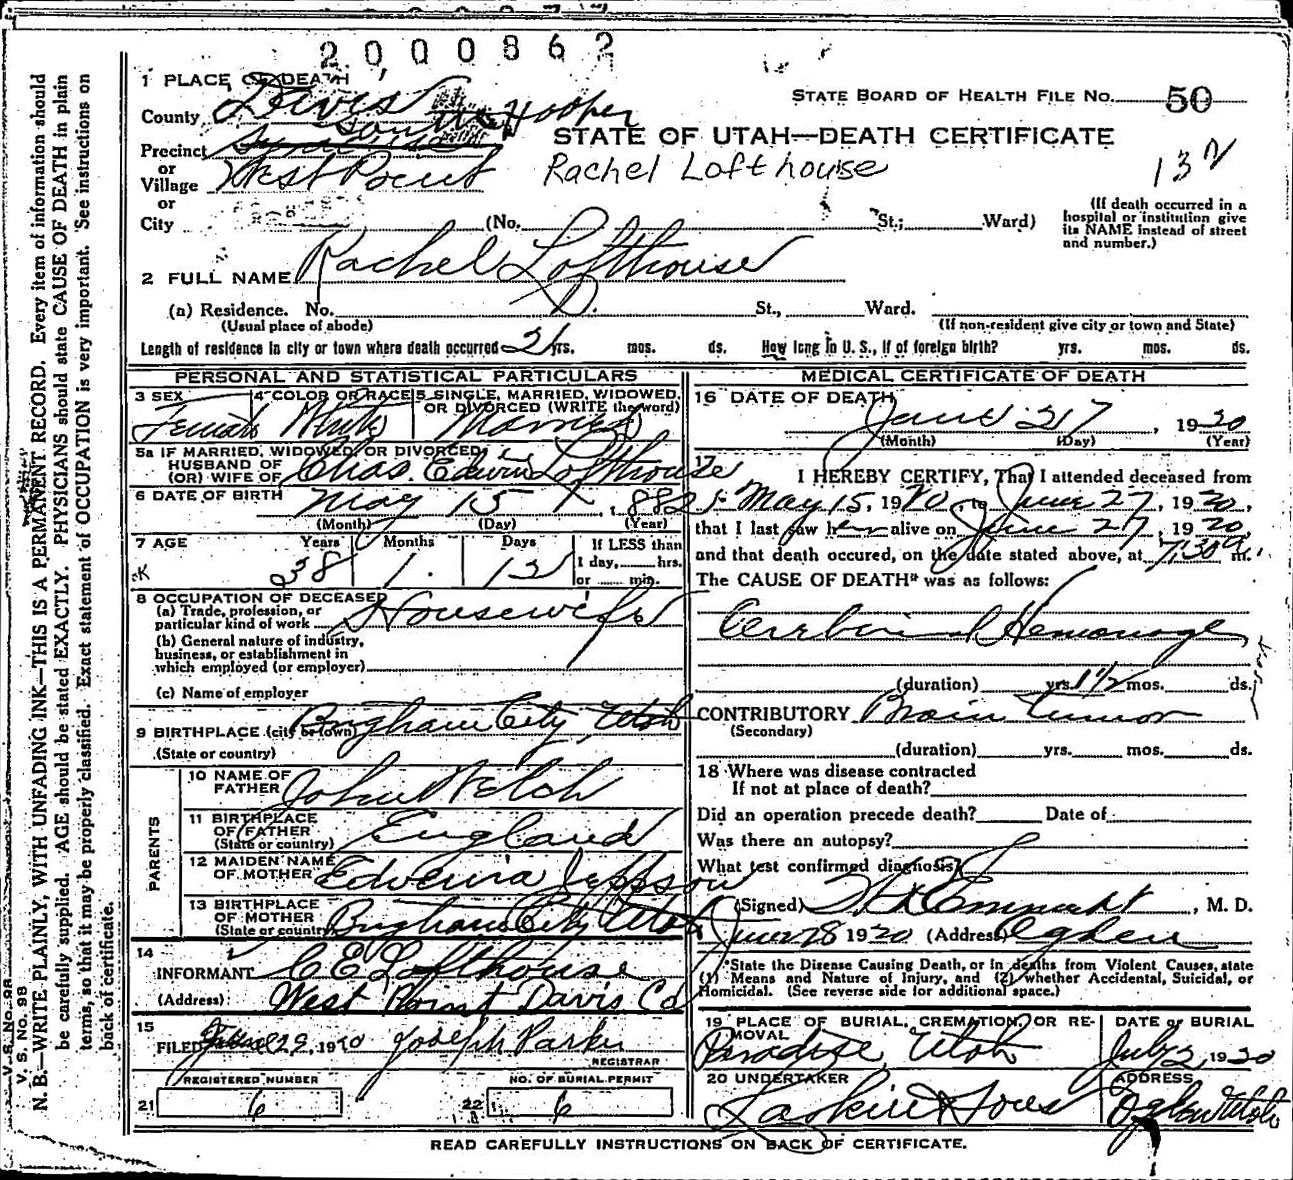 2000862
1 PLACE OF DEATH
STATE BOARD OF HEALTH FILE No. 50
County Davis
South Hooper
Precinct
STATE OF UTAH—DEATH CERTIFICATE
or
Village West Point
Rachel Lofthouse
137
or
City (No. St.; Ward)
(If death occurred in a
hospital or institution give
its NAME instead of street
and number.)
2 FULL NAME Rachel Lofthouse
(a) Residence. No. D. St., Ward.
(Usual place of abode) (If non-resident give city or town and State)
Length of residence in city or town where death occurred yrs. mos. ds. How long in U. S., if of foreign birth? yrs. mos. ds.
PERSONAL AND STATISTICAL PARTICULARS
3 SEX 4 COLOR OR RACE 5 SINGLE, MARRIED, WIDOWED,
OR DIVORCED (WRITE the word)
Female White Married
5a IF MARRIED, WIDOWED, OR DIVORCED
HUSBAND OF
(OR) WIFE OF Chas. Edwin Lofthouse
6 DATE OF BIRTH May 15, 1882
(Month) (Day) (Year)
7 AGE Years Months Days If LESS than
1 day, hrs.
or min.
38 1 12
8 OCCUPATION OF DECEASED
(a) Trade, profession, or
particular kind of work Housewife
(b) General nature of industry,
business, or establishment in
which employed (or employer)
(c) Name of employer
9 BIRTHPLACE (city or town) Brigham City, Utah
(State or country)
PARENTS
10 NAME OF
FATHER John Welch
11 BIRTHPLACE
OF FATHER
(State or country) England
12 MAIDEN NAME
OF MOTHER Edvenia Jeppson
13 BIRTHPLACE
OF MOTHER
(State or country) Brigham City Utah
14
INFORMANT C E Lofthouse
(Address) West Point Davis Co
15
FILED 29, 1920 Joseph Parker
REGISTRAR
REGISTERED NUMBER NO. OF BURIAL PERMIT
21 6 22 6
MEDICAL CERTIFICATE OF DEATH
16 DATE OF DEATH
June 27, 1920
(Month) (Day) (Year)
17
I HEREBY CERTIFY, That I attended deceased from
May 15, 1920, to June 27, 1920,
that I last saw her alive on June 27, 1920
and that death occured, on the date stated above, at 7:30 a m.
The CAUSE OF DEATH* was as follows:
Cerebral Hemorrage
(duration) yrs. 1 1/2 mos. ds.
CONTRIBUTORY Brain Tumor
(Secondary)
(duration) yrs. mos. ds.
18 Where was disease contracted
If not at place of death?
Did an operation precede death? Date of
Was there an autopsy?
What test confirmed diagnosis?
(Signed) , M. D.
June 28 1920 (Address) Ogden
*State the Disease Causing Death, or in deaths from Violent Causes, state
(1) Means and Nature of Injury, and (2) whether Accidental, Suicidal, or
Homicidal. (See reverse side for additional space.)
19 PLACE OF BURIAL, CREMATION, OR RE-
MOVAL
DATE OF BURIAL
Paradise, Utah July 2 1920
20 UNDERTAKER ADDRESS
Larkin & Sons Ogden Utah
READ CAREFULLY INSTRUCTIONS ON BACK OF CERTIFICATE.
V. S. No. 98
V. S. No. 98
N. B.—WRITE PLAINLY, WITH UNFADING INK—THIS IS A PERMANENT RECORD. Every item of information should
be carefully supplied. AGE should be stated EXACTLY. PHYSICIANS should state CAUSE OF DEATH in plain
terms, so that it may be properly classified. Exact statement of OCCUPATION is very important. See instructions on
back of certificate.